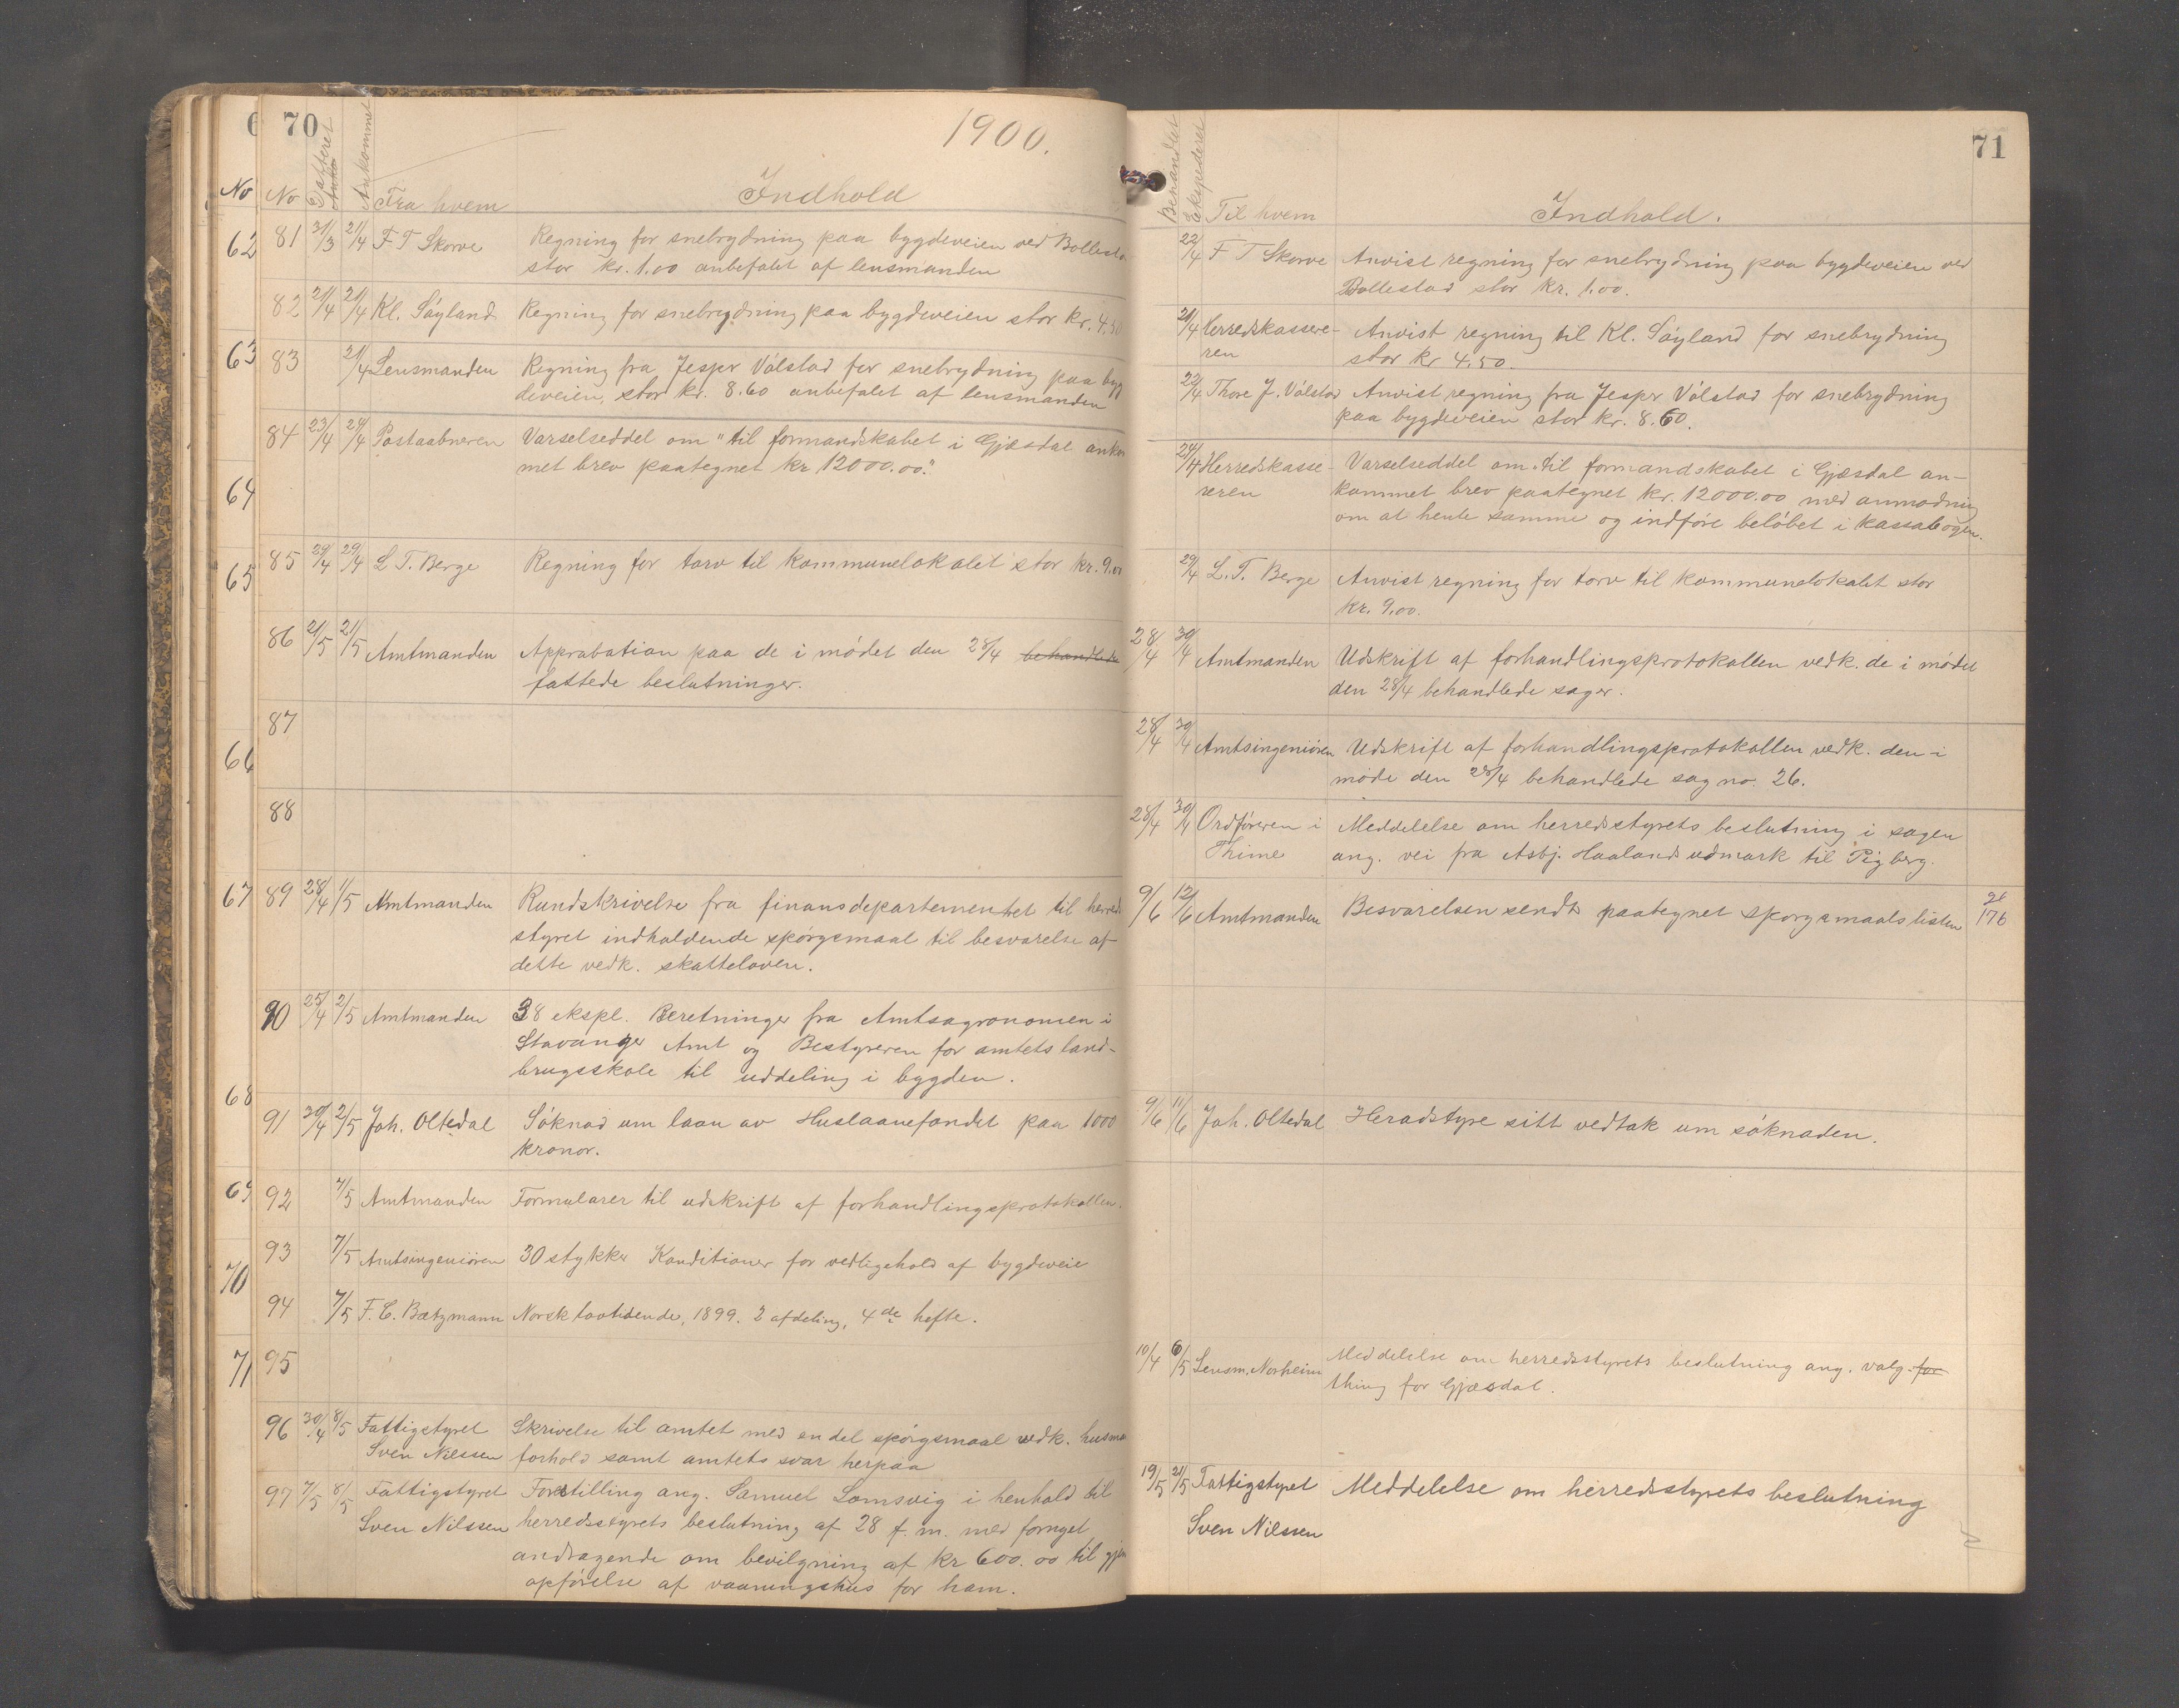 70
1900.
No
No Datteret Ankommet Fra hvem Indhold
62
63
64
65
66
67
68
69
70
71
81 31/3 21/4 F. T Skorve Regning for snebrydning paa bygdeveien ved Bollesta
stor kr. 1.00 anbefalet af lensmanden
82 21/4 21/4 Kl. Söyland Regning for snebrydning paa bygdeveien stor kr. 4.50
83 21/4 Lensmanden Regning fra Jesper Válstad for snebrydning paa byg
deveien, stor kr. 8.60 anbefalet af lensmanden
84 23/4 24/4 Postaabneren Varselseddel om "til formandskabet i Gjæsdal ankom
met brev paategnet kr 12000.00."
85 29/4 29/4 L T. Berge Regning for torv til kommunelokalet stor kr. 9.00
86 21/5 21/5 Amtmanden Approbation paa de i mödet den 28/4 behandlede
fattede beslutninger.
87
88
89 28/4 1/5 Amtmanden Rundskrivelse fra finansdepartementet til herreds
styret indholdende spörgsmaal til besvarelse af
dette vedk. skatteloven.
90 25/4 2/5 Amtmanden 38 ekspl. Beretninger fra Amtsagronomen i
Stavanger Amt og Bestyreren for amtets land-
brugsskole til uddeling i bygden.
91 30/4 2/5 Joh. Oltedal Söknad um laan av Huslaanefondet paa 1000
kronor.
92 7/5 Amtmanden Formularer til udskrift af forhandlingsprotokollen.
93 7/5 Amtsingeniören 30 stykker Konditioner for vedligehold af bygdeveie
94 7/5 F. C. Bætzmann Norsk lovtidende, 1899. 2 afdeling, 4de hefte.
95
96 30/4 8/5 Fattigstyret Skrivelse til amtet med en del spörgsmaal vedk. husma
Sven Nilssen forhold samt amtets svar herpaa
97 7/5 8/5 Fattigstyret Forestilling ang. Samuel Lomsvig i henhold til
Sven Nilssen herredsstyrets beslutning af 28 f. m. med fornyet
andragende om bevilgning af kr 600.00 til gjen
opförelse af vaaningshus for ham.
71
Behandlet Ekspederet Til hvem Indhold.
22/4 F T Skorve Anvist regning for snebrydning paa bygdeveien ved
Bollestad stor kr. 1.00.
21/4 Herredskassere- Anvist regning til Kl. Söyland for snebrydning
ren stor kr 4.50.
22/4 Thore J. Válstad Anvist regning fra Jesper Válstad for snebrydning
paa bygdeveien stor kr. 8.60.
24/4 Herredskasse- Varselseddel om "til formandskabet i Gjæsdal an-
reren kommet brev paategnet kr. 12000.00 med anmodning
om at hente samme og indföre belöbet i kassabogen.
29/4 L. T. Berge Anvist regning for torv til kommunelokalet stor
kr. 9.00.
28/4 30/4 Amtmanden Udskrift af forhandlingsprotokollen vedk. de i mödet
den 28/4 behandlede sager.
28/4 30/4 Amtsingeniören Udskrift af forhandlingsprotokollen vedk. den i
möde den 28/4 behandlede sag no. 26.
28/4 30/4 Ordföreren i Meddelelse om herredsstyrets beslutning i sagen
Thime ang. vei fra Asbj. Haalands udmark til Pigberg.
9/6 12/6 Amtmanden Besvarelsen sendt paategnet spørgsmaalslisten 176
9/6 11/6 Joh. Oltedal Heradstyre sitt vedtak um söknaden.
10/4 6/5 Lensm. Norheim Meddelelse om herredsstyrets beslutning ang. valg for
thing for Gjæsdal.
19/5 21/5 Fattigstyret Meddelelse om herredsstyrets beslutning
Sven Nilssen